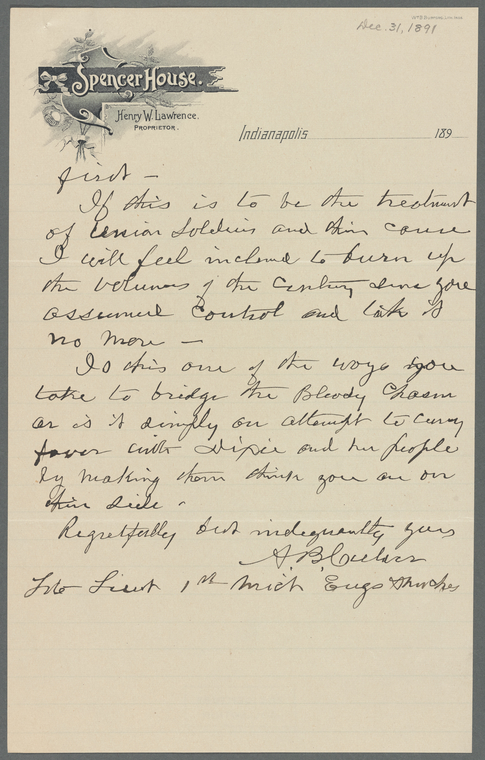 Dec. 31, 1891
Spencer House.
Henry W. Lawrence.
Proprietor.
Indianapolis 189
first —
If this is to be the treatment
of union soldiers and their cause
I will feel inclined to burn up
the volumes of the Century since you
assumed control and take it
no more —
Is this one of the ways you
take to bridge the Bloody Chasm
or is it simply an attempt to curry
favor with Dixie and her people
by making them think you are on
their side.
Regretfully but indignantly yours
A. B.
Late Lieut 1st Mich Engs &